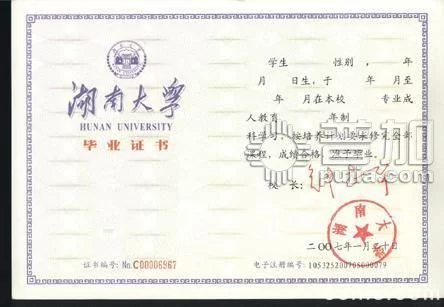 湖南大学
HUNAN UNIVERSITY
毕业证书
证书编号: No.C00006967
学生 性别 , 年
月 日生,于 年 月至
年 月在本校 专业成
人教育 年制
科学习,按培养计划要求修完全部
课程,成绩合格,准予毕业。
校 长:
湖南大学
二〇〇七年一月 十日
电子注册编号: 105325200705000079
普加
pujia.com